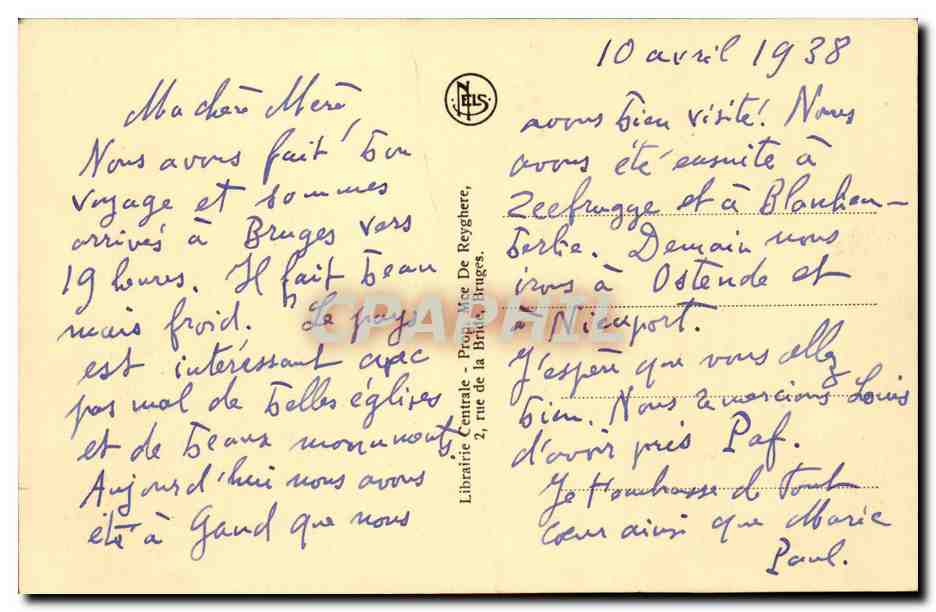 10 avril 1938
Ma chère Mère
Nous avons fait bon
voyage et sommes
arrivés à Bruges vers
19 heures. Il fait beau
mais froid. Le pays
est intéressant avec
pas mal de belles églises
et de beaux monuments.
Aujourd'hui nous avons
été à Gand que nous
NELS
Librairie Centrale - Prop. Mce De Reyghere,
2, rue de la Bride, Bruges.
CPAPHIL
avons bien visité. Nous
avons été ensuite à
Zeebrugge et à Blanken-
berhe. Demain nous
irons à Ostende et
à Nieuport.
J'espère que vous allez
bien. Nous remercions Louis
d'avoir pris Paf.
Je t'embrasse de tout
cœur ainsi que Marie
Paul.